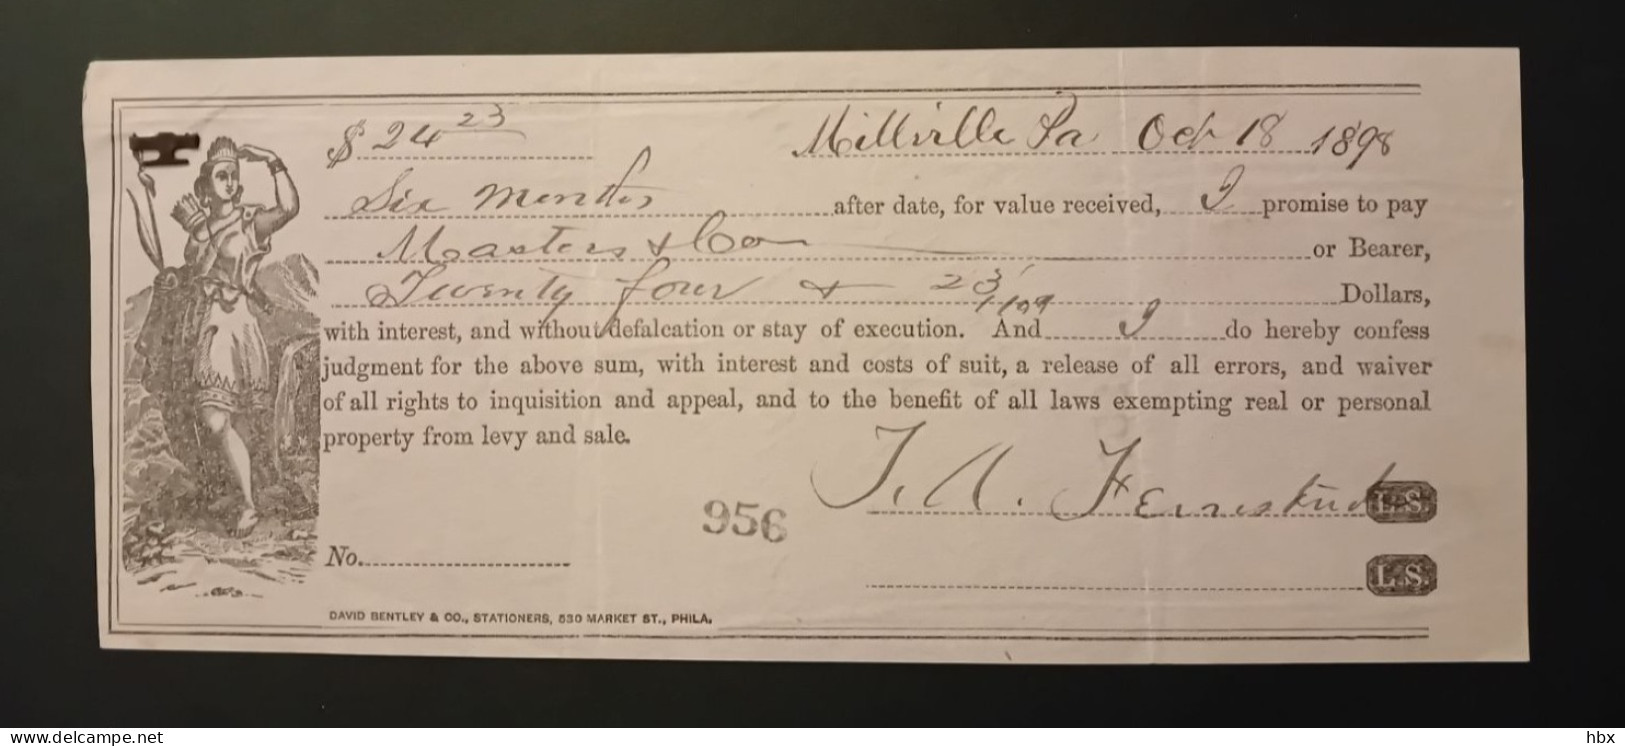 $ 24 23
Millville Pa Oct 18 1898
Six months after date, for value received, I promise to pay
Masters & Con or Bearer,
Twenty four & 23/100 Dollars,
with interest, and without defalcation or stay of execution. And I do hereby confess
judgment for the above sum, with interest and costs of suit, a release of all errors, and waiver
of all rights to inquisition and appeal, and to the benefit of all laws exempting real or personal
property from levy and sale.
T. A. L.S.
956
No.
L.S.
DAVID BENTLEY & CO., STATIONERS, 530 MARKET ST., PHILA.
www.delcampe.net
hbx